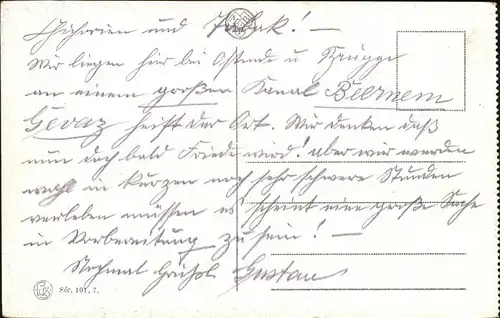 Zichorien und Tabak! —
Wir liegen hier bei Ostende u Brügge
an einem großen Kanal Beernem
Gevaz heißt der Ort. Wir denken daß
nun doch bald Friede wird! aber wir werden
wohl in kurzen noch sehr schwere Stunden
verleben müssen es scheint eine große Sache
in Vorbereitung zu sein! —
Nochmal Grüße Gustav
Ser. 101, 7.